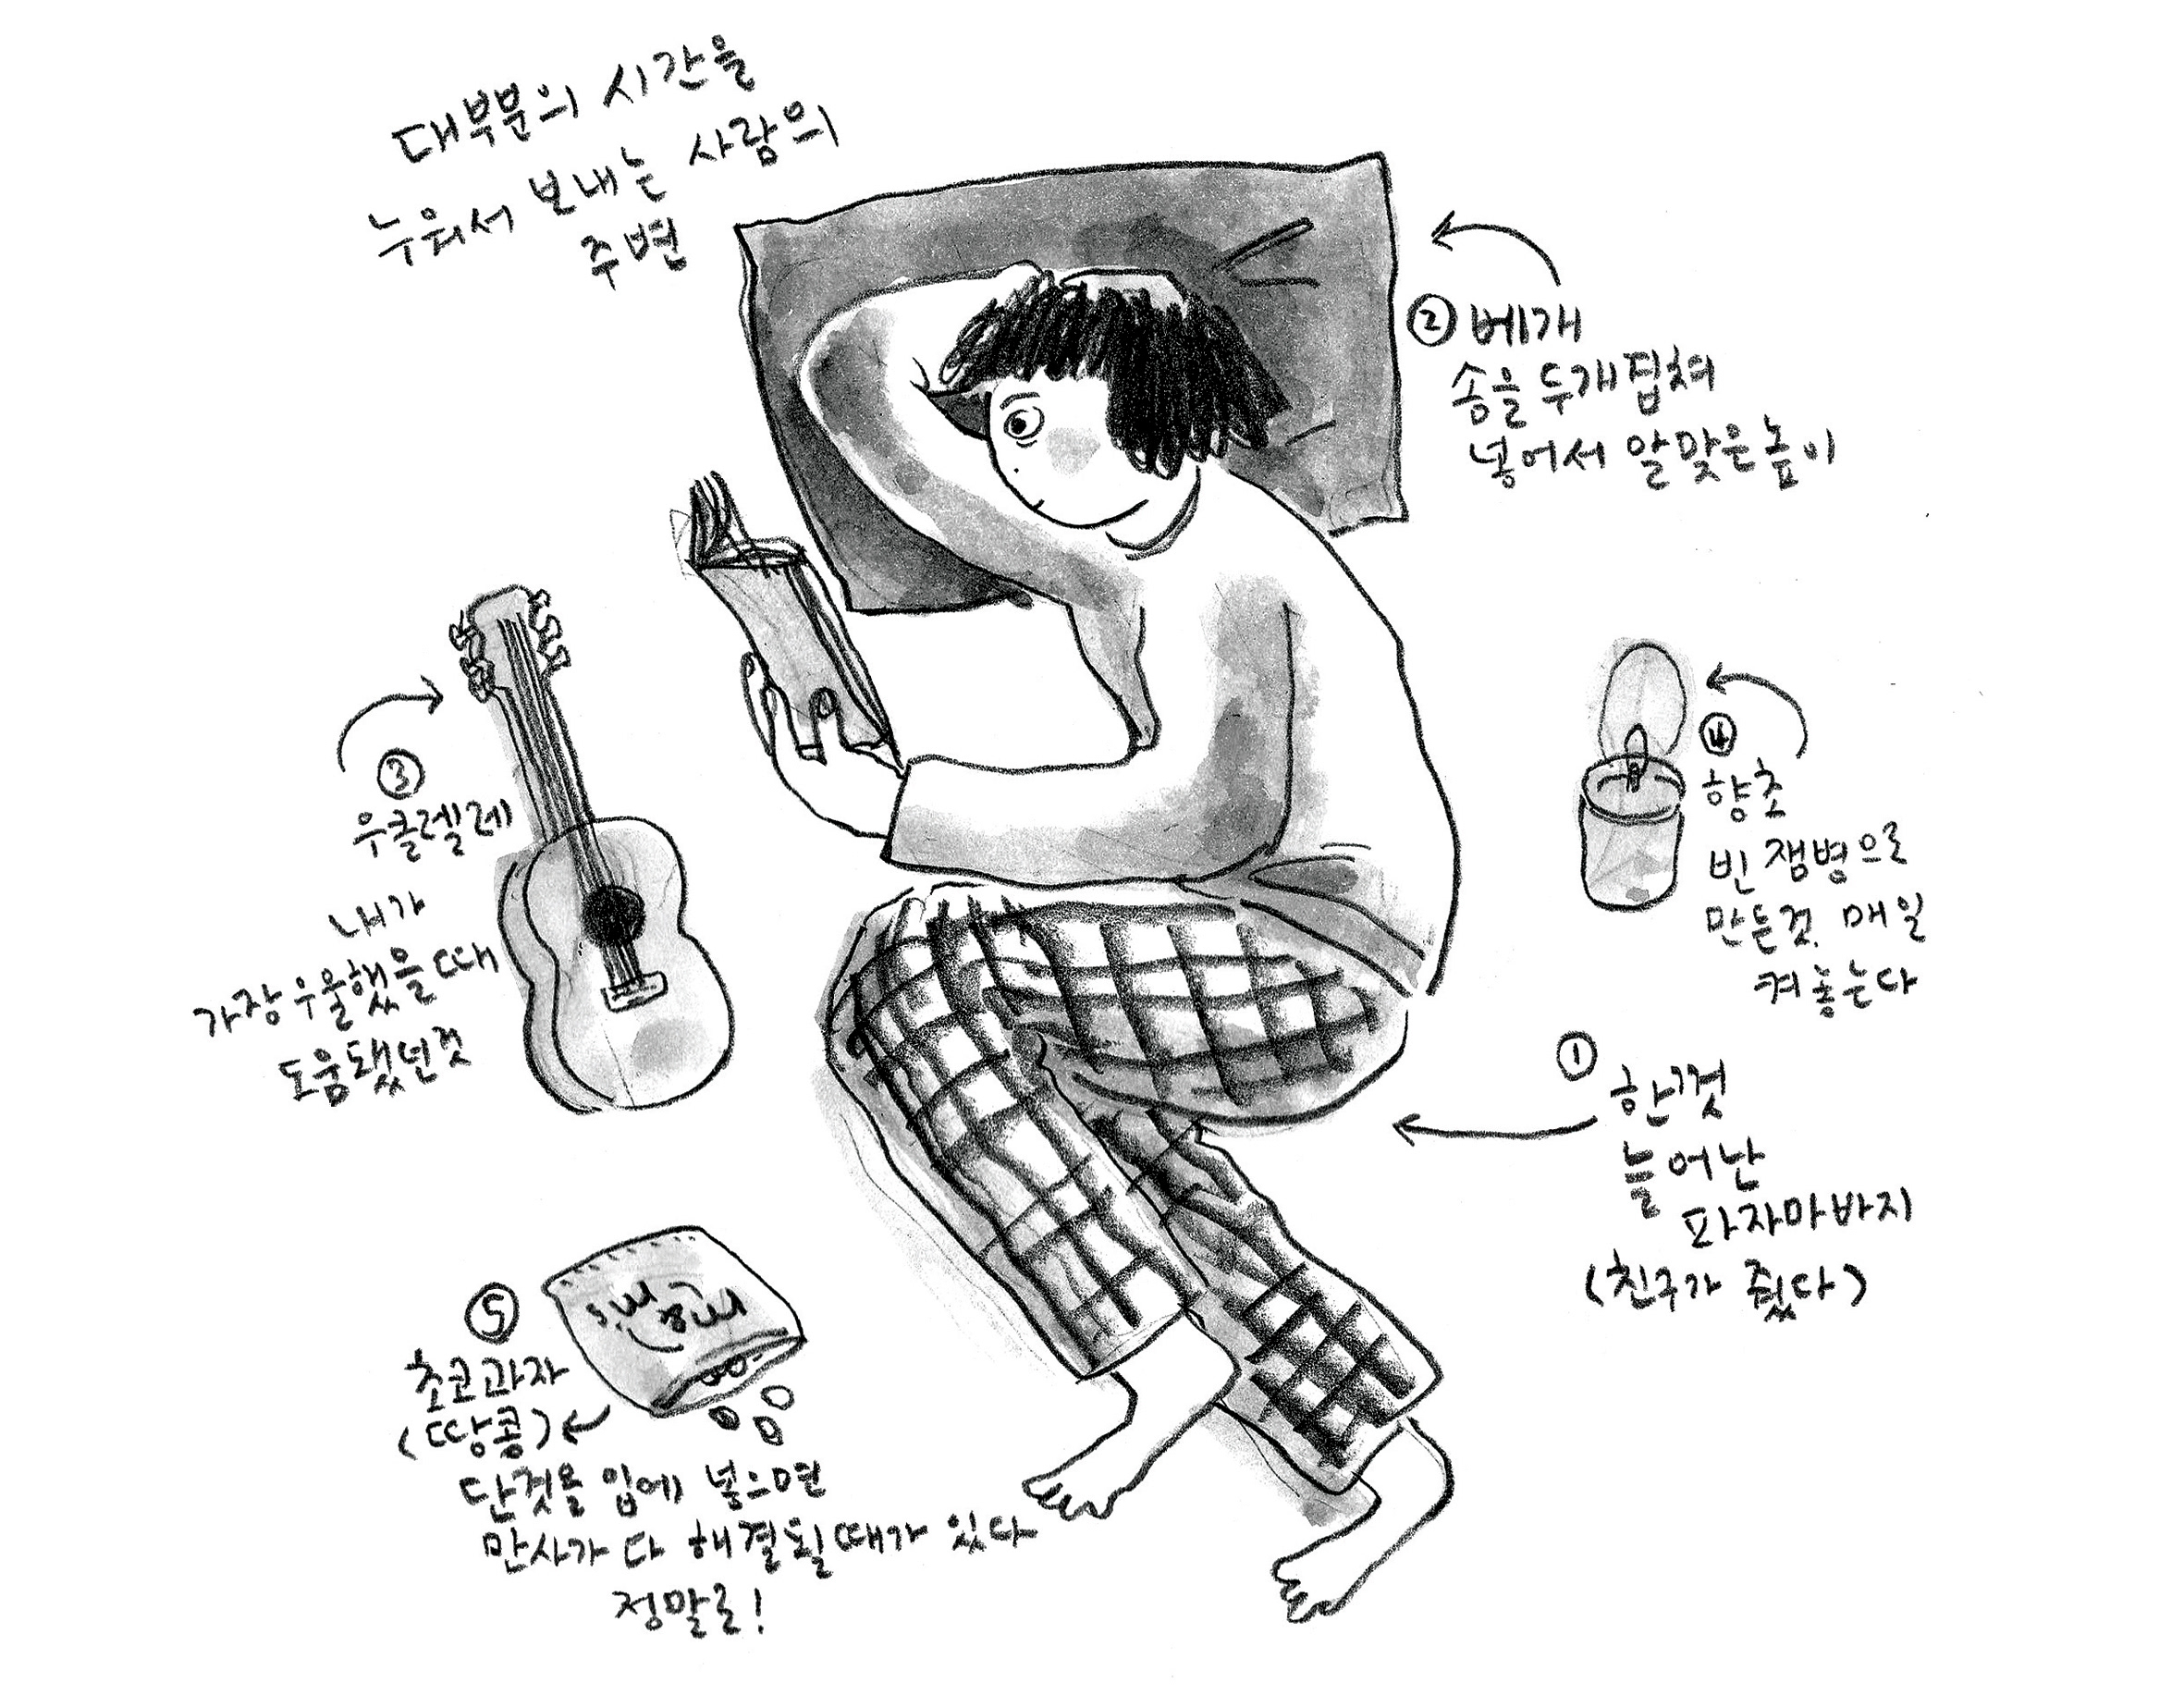 대부분의 시간을
누워서 보내는 사람의
주변
② 베개
솜을 두개 겹쳐
넣어서 알맞은 높이
③
우쿨렐레
내가
가장 우울했을 때
도움됐던것
④
향초
빈 잼병으로
만든것. 매일
켜놓는다
①
한껏
늘어난
파자마바지
(친구가 줬다)
⑤
초코과자
(땅콩)
단것을 입에 넣으면
만사가 다 해결될때가 있다
정말로!